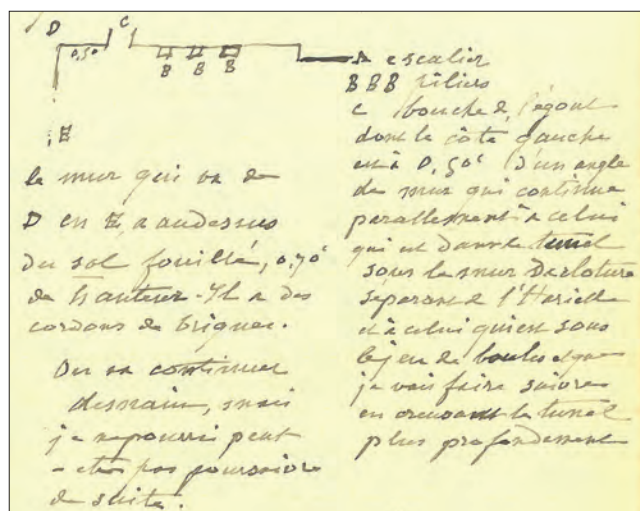 D C
0,50
B B B
E
A escalier
BBB piliers
C bouche d'égout
dont le côté gauche
est à 0,50c d'un angle
de mur qui continue
parallèlement à celui
qui est dans le tunnel
sous le mur de cloture
séparant de l'
et à celui qui est sous
le jeu de boules et que
je vais faire suivre
en creusant le tunel
plus profondément
le mur qui va de
D en E, a au dessus
du sol fouillé, 0,70c
de hauteur - Il a des
cordons de briques.
On va continuer
demain, mais
je ne pourrai peut
- être pas poursuivre
de suite.